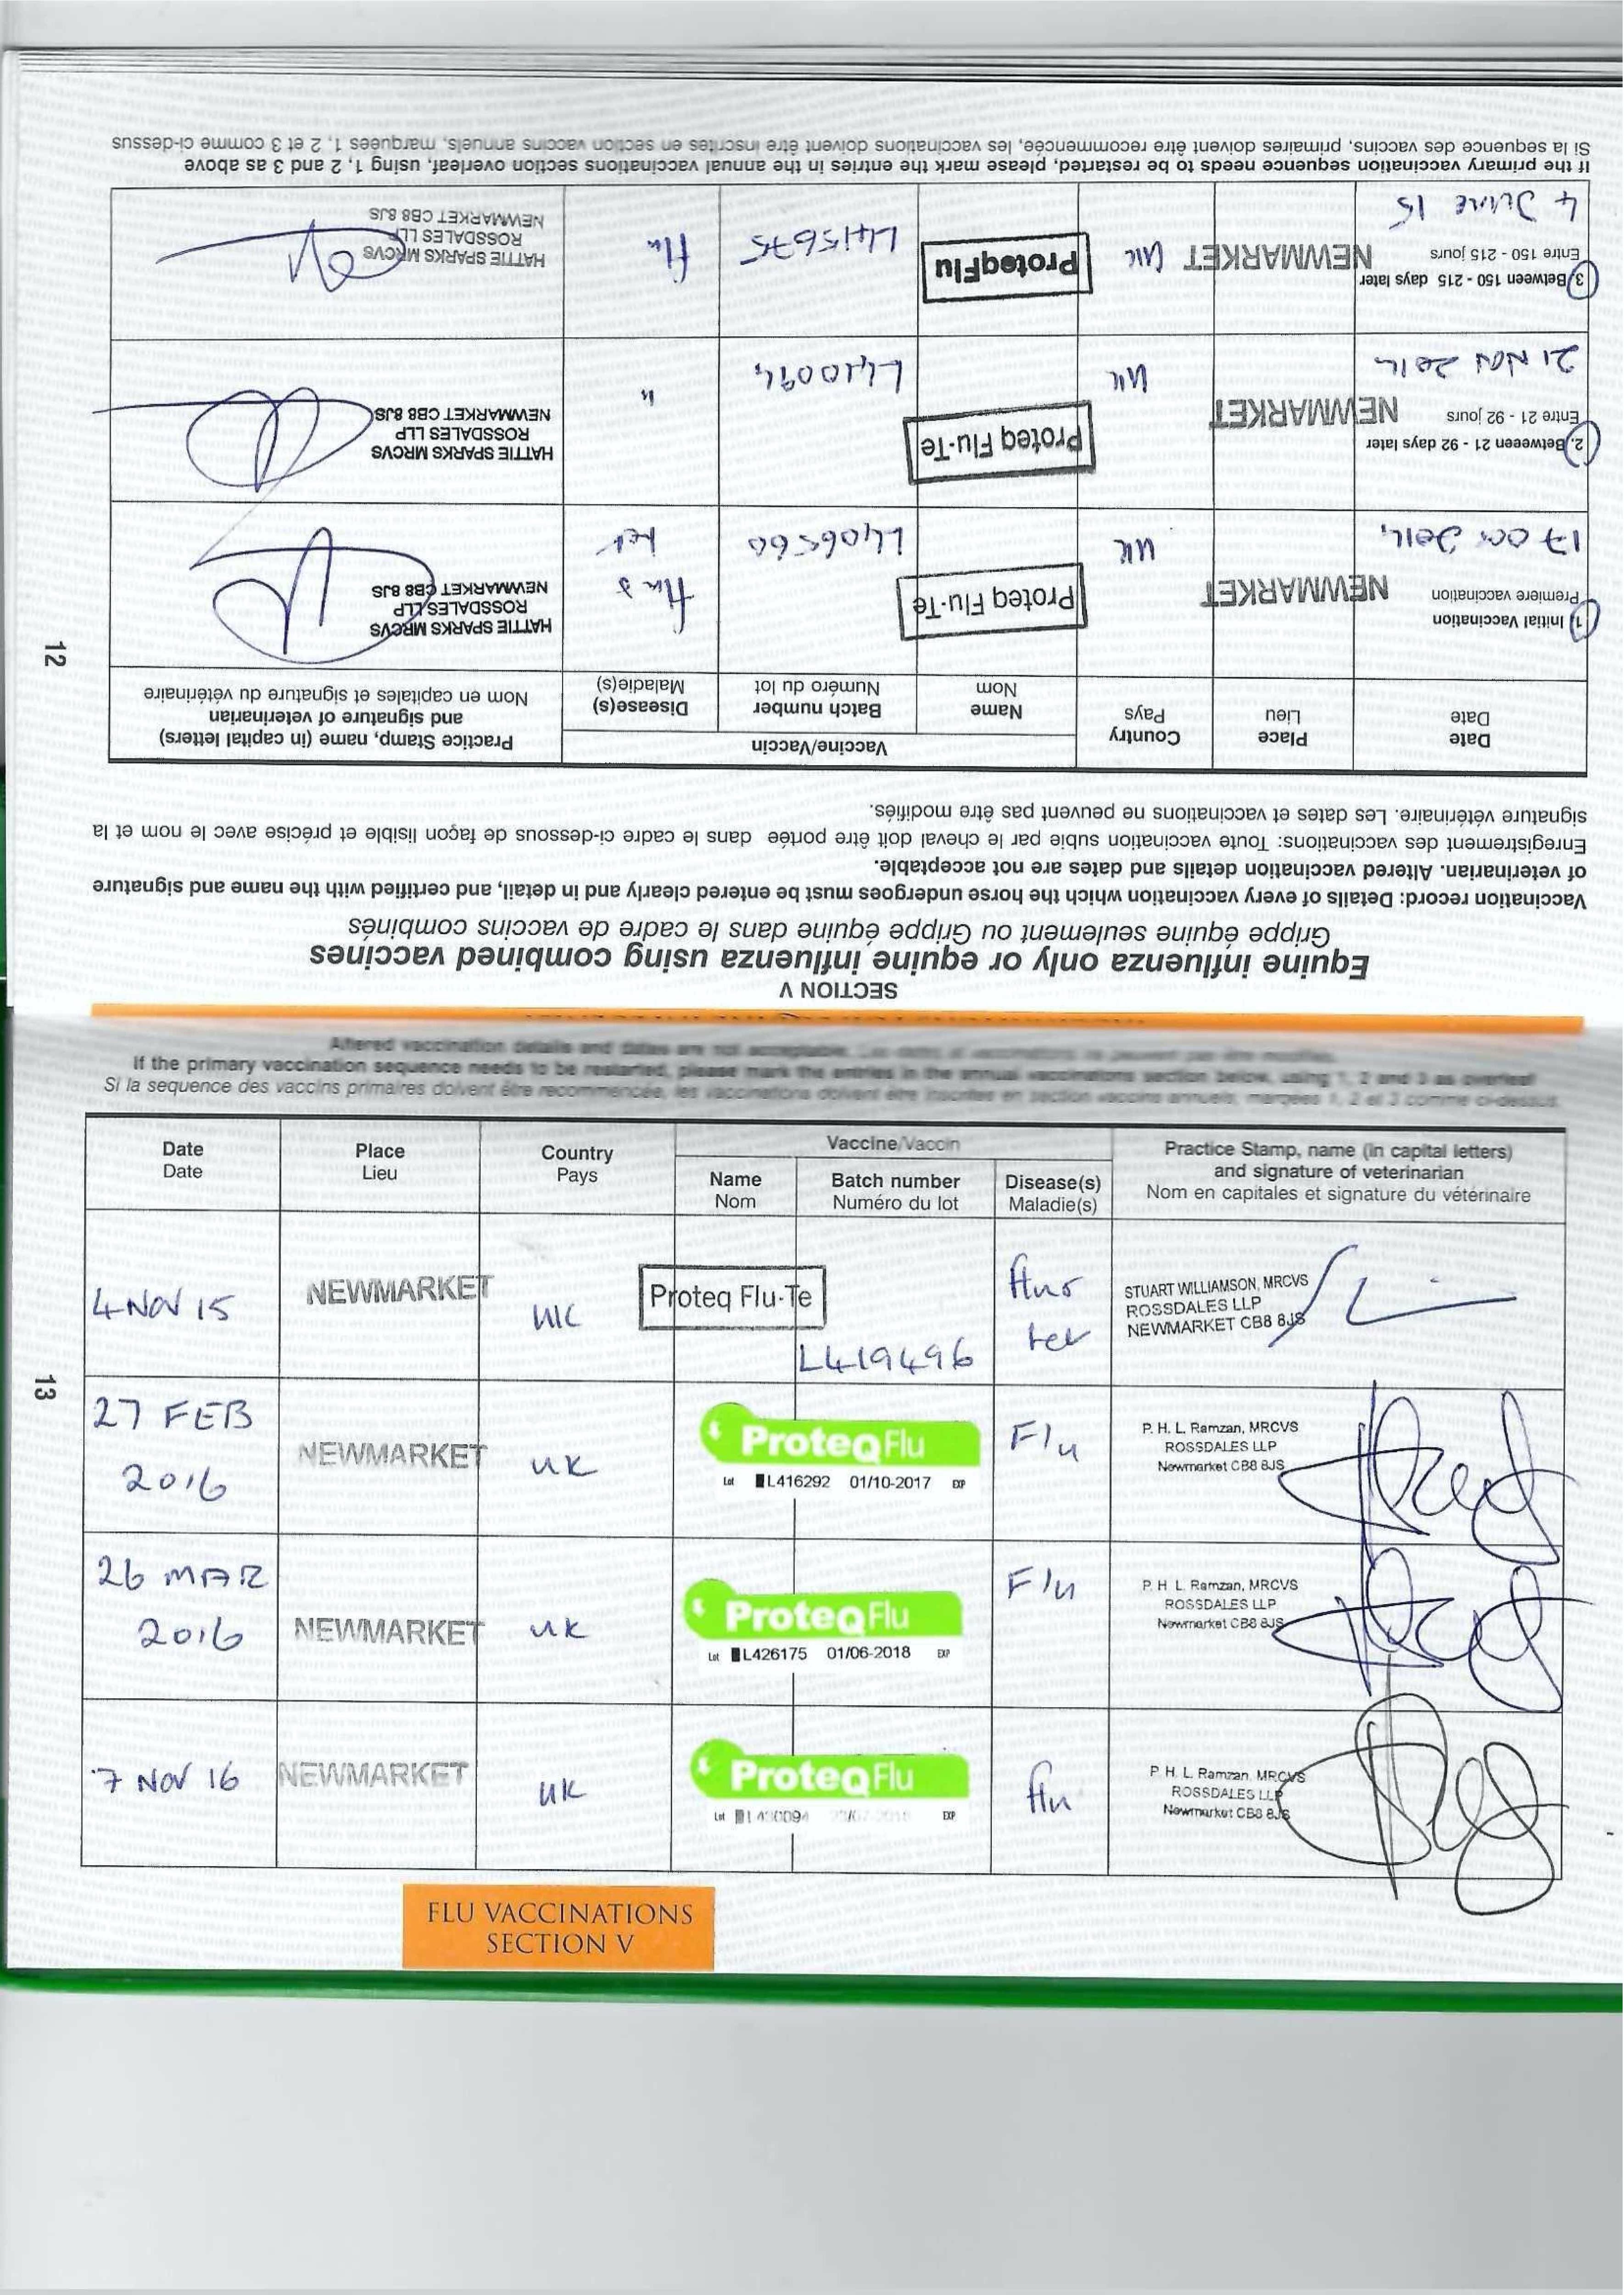 SECTION V
Equine influenza only or equine influenza using combined vaccines
Grippe équine seulement ou Grippe équine dans le cadre de vaccins combinés
Vaccination record: Details of every vaccination which the horse undergoes must be entered clearly and in detail, and certified with the name and signature
of veterinarian. Altered vaccination details and dates are not acceptable.
Enregistrement des vaccinations: Toute vaccination subie par le cheval doit être portée dans le cadre ci-dessous de façon lisible et précise avec le nom et la
signature vétérinaire. Les dates et vaccinations ne peuvent pas être modifiés.
Date
Date
Place
Lieu
Country
Pays
Vaccine/Vaccin
Name
Nom
Batch number
Numéro du lot
Disease(s)
Maladie(s)
Practice Stamp, name (in capital letters)
and signature of veterinarian
Nom en capitales et signature du vétérinaire
12
1. Initial Vaccination
Première vaccination
17 OCT 2014
NEWMARKET
UK
Proteq Flu-Te
L406560
flu &
tet
HATTIE SPARKS MRCVS
ROSSDALES LLP
NEWMARKET CB8 8JS
2. Betweeen 21 - 92 days later
Entre 21 - 92 jours
21 NOV 2014
NEWMARKET
UK
Proteq Flu-Te
L410094
"
HATTIE SPARKS MRCVS
ROSSDALES LLP
NEWMARKET CB8 8JS
3. Between 150 - 215 days later
Entre 150 - 215 jours
4 JUNE 15
NEWMARKET
UK
ProteqFlu
L415675
flu
HATTIE SPARKS MRCVS
ROSSDALES LLP
NEWMARKET CB8 8JS
If the primary vaccination sequence needs to be restarted, please mark the entries in the annual vaccinations section overleaf, using 1, 2 and 3 as above
Si la sequence des vaccins, primaires doivent être recommencée, les vaccinations doivent être inscrites en section vaccins annuels, marquées 1, 2 et 3 comme ci-dessus
Altered vaccination details and dates are not acceptable. Les dates et vaccinations ne peuvent pas être modifiés.
If the primary vaccination sequence needs to be restarted, please mark the entries in the annual vaccinations section below, using 1, 2 and 3 as overleaf
Si la sequence des vaccins primaires doivent être recommencée, les vaccinations doivent être inscrites en section vaccins annuels, marquées 1, 2 et 3 comme ci-dessus.
Date
Date
Place
Lieu
Country
Pays
Vaccine/Vaccin
Name
Nom
Batch number
Numéro du lot
Disease(s)
Maladie(s)
Practice Stamp, name (in capital letters)
and signature of veterinarian
Nom en capitales et signature du vétérinaire
13
4 NOV 15
NEWMARKET
UK
Proteq Flu-Te
L419496
flu &
tet
STUART WILLIAMSON, MRCVS
ROSSDALES LLP
NEWMARKET CB8 8JS
27 FEB
2016
NEWMARKET
UK
ProteqFlu
Lot L416292 01/10-2017 EXP
Flu
P. H. L. Ramzan, MRCVS
ROSSDALES LLP
Newmarket CB8 8JS
26 MAR
2016
NEWMARKET
UK
ProteqFlu
Lot L426175 01/06-2018 EXP
Flu
P. H. L. Ramzan, MRCVS
ROSSDALES LLP
Newmarket CB8 8JS
7 NOV 16
NEWMARKET
UK
ProteqFlu
Lot EXP
flu
P. H. L. Ramzan, MRCVS
ROSSDALES LLP
Newmarket CB8 8JS
FLU VACCINATIONS
SECTION V